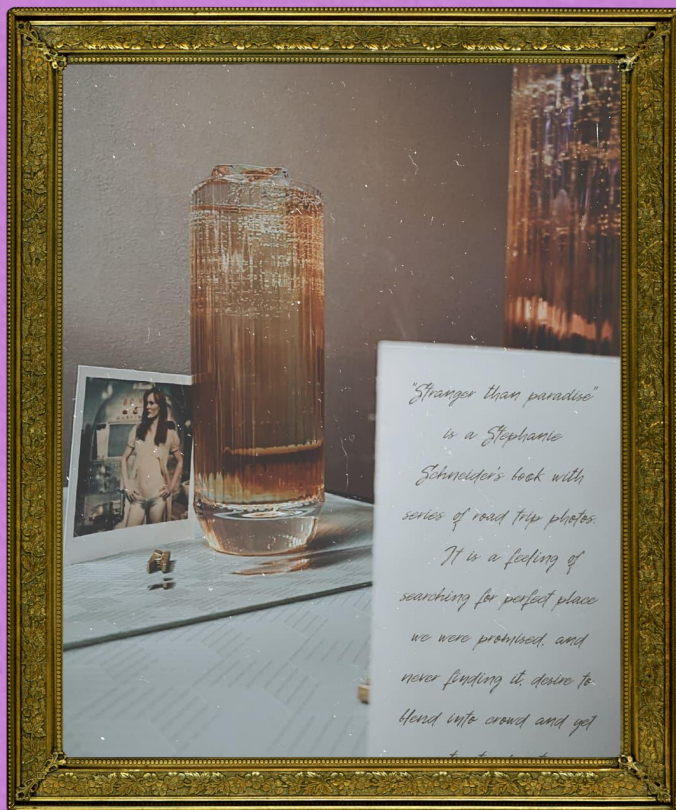 "Stranger than paradise"
is a Stephanie
Schneider's book with
series of road trip photos.
It is a feeling of
searching for perfect place
we were promised, and
never finding it, desire to
blend into crowd and yet